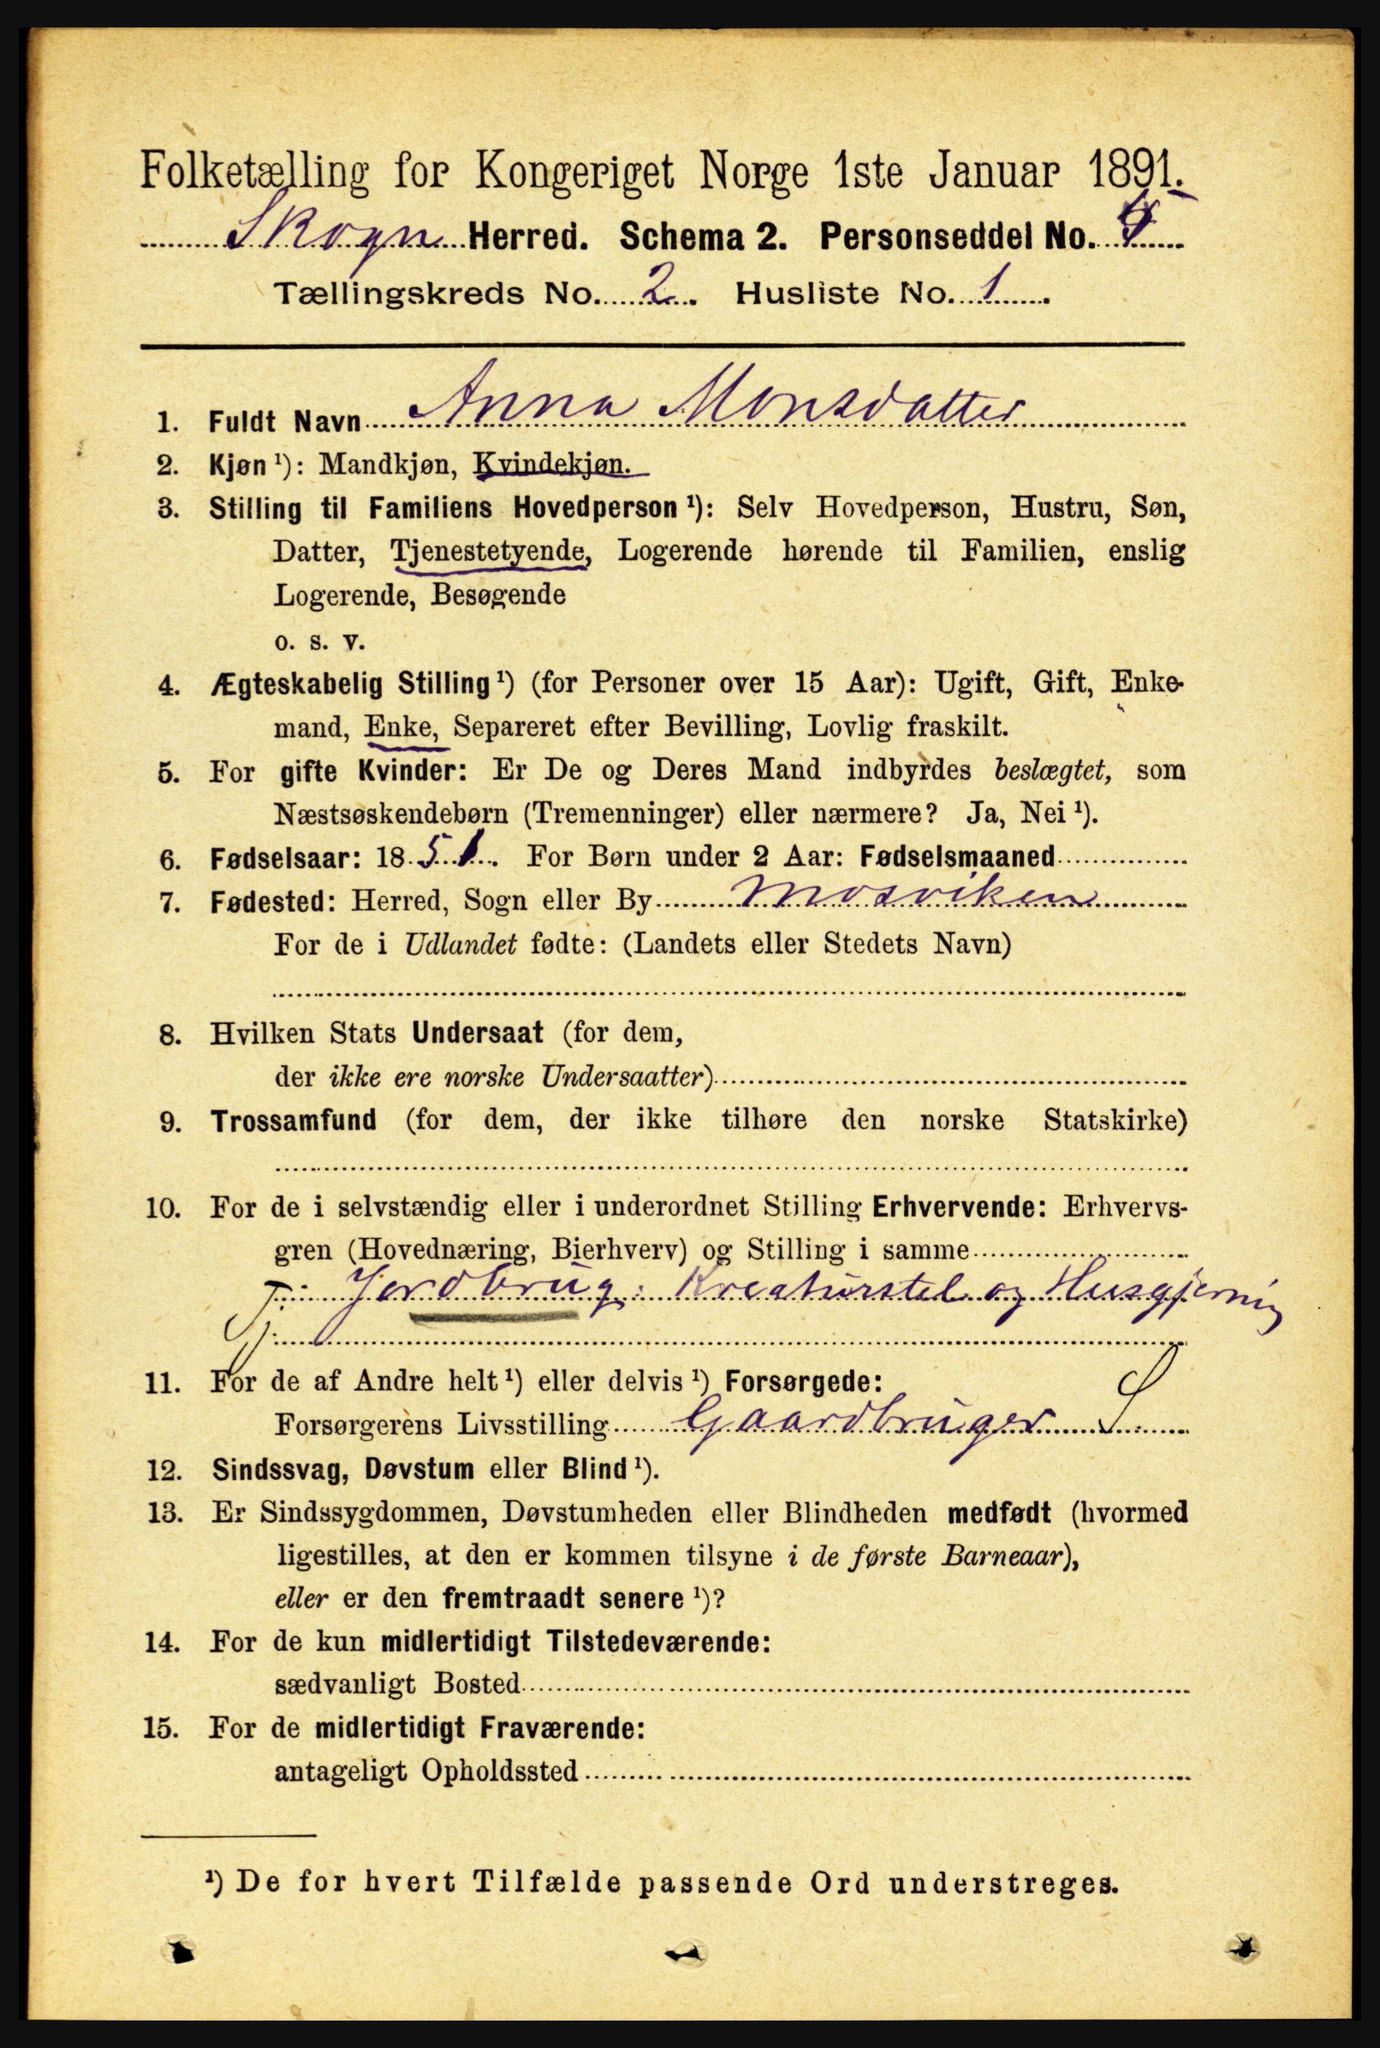 Folketælling for Kongeriget Norge 1ste Januar 1891.
Skogn Herred. Schema 2. Personseddel No.
Tællingskreds No. 2. Husliste No. 1.
1. Fuldt Navn Anna Monsdatter
2. Kjøn ¹): Mandkjøn, Kvindekjøn.
3. Stilling til Familiens Hovedperson ¹): Selv Hovedperson, Hustru, Søn,
Datter, Tjenestetyende, Logerende hørende til Familien, enslig
Logerende, Besøgende
o. s. v.
4. Ægteskabelig Stilling ¹) (for Personer over 15 Aar): Ugift, Gift, Enke-
mand, Enke, Separeret efter Bevilling, Lovlig fraskilt.
5. For gifte Kvinder: Er De og Deres Mand indbyrdes beslægtet, som
Næstsøskendebørn (Tremenninger) eller nærmere? Ja, Nei ¹).
6. Fødselsaar: 1851. For Børn under 2 Aar: Fødselsmaaned
7. Fødested: Herred, Sogn eller By Mosviken
For de i Udlandet fødte: (Landets eller Stedets Navn)
8. Hvilken Stats Undersaat (for dem,
der ikke ere norske Undersaatter)
9. Trossamfund (for dem, der ikke tilhøre den norske Statskirke)
10. For de i selvstændig eller i underordnet Stilling Erhvervende: Erhvervs-
gren (Hovednæring, Bierhverv) og Stilling i samme
Tj: Jordbrug: Kreaturstel og Husgjerning
11. For de af Andre helt ¹) eller delvis ¹) Forsørgede:
Forsørgerens Livsstilling Gaardbruger S
12. Sindssvag, Døvstum eller Blind ¹).
13. Er Sindssygdommen, Døvstumheden eller Blindheden medfødt (hvormed
ligestilles, at den er kommen tilsyne i de første Barneaar),
eller er den fremtraadt senere ¹)?
14. For de kun midlertidigt Tilstedeværende:
sædvanligt Bosted
15. For de midlertidigt Fraværende:
antageligt Opholdssted
¹) De for hvert Tilfælde passende Ord understreges.